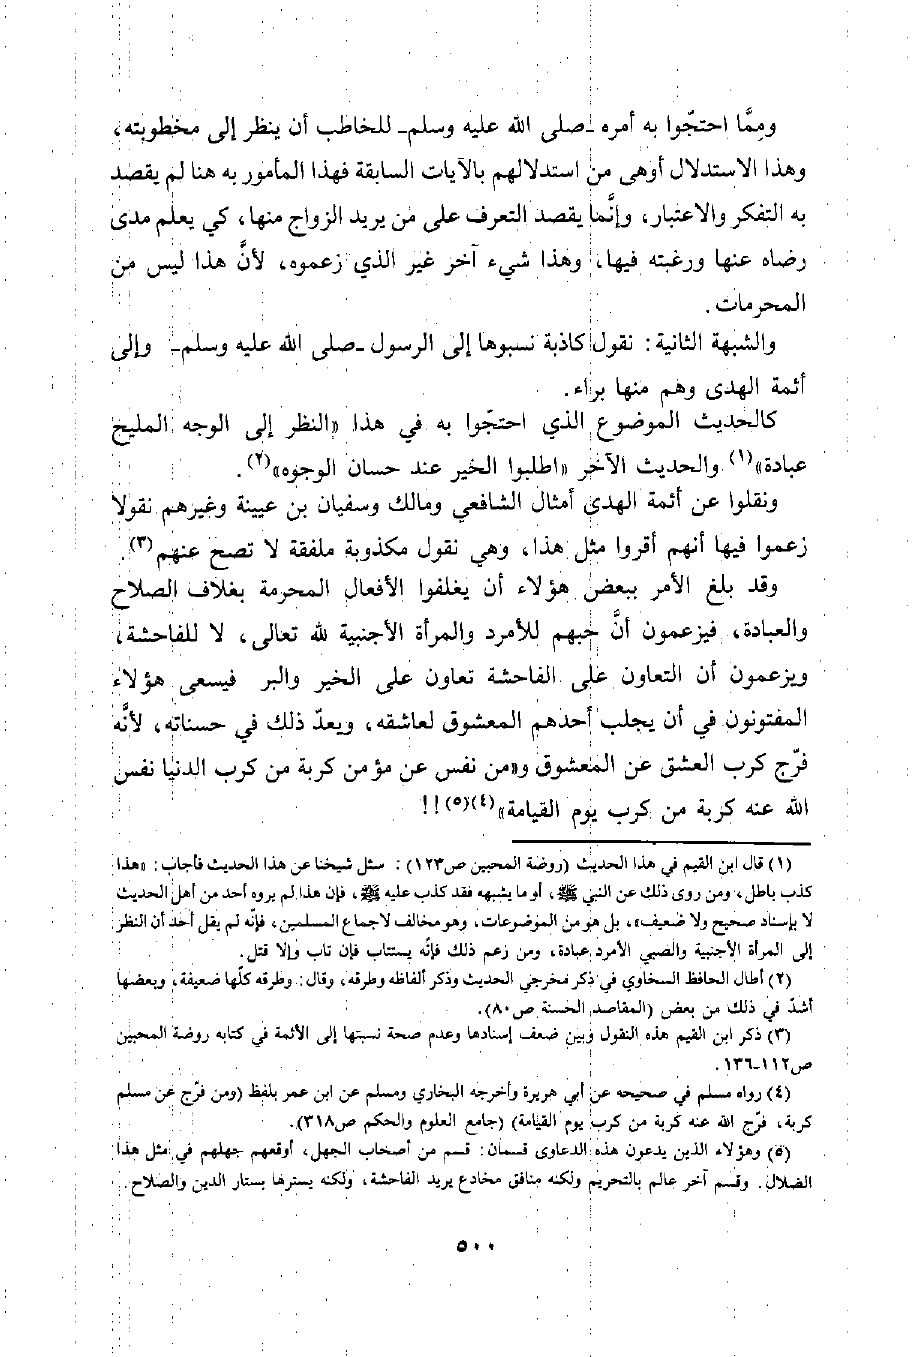 وممَّا احتجّوا به أمره ـصلى الله عليه وسلم ـ للخاطب أن ينظر إلى مخطوبته،
وهذا الاستدلال أوهى من استدلالهم بالآيات السابقة فهذا المأمور به هنا لم يقصد
به التفكر والاعتبار، وإنَّما يقصد التعرف على من يريد الزواج منها، كي يعلم مدى
رضاه عنها ورغبته فيها، وهذا شيء آخر غير الذي زعموه، لأنَّ هذا ليس من
المحرمات.
والشبهة الثانية: نقول كاذبة نسبوها إلى الرسول ـصلى الله عليه وسلم ـ وإلى
أئمة الهدى وهم منها براء.
كالحديث الموضوع الذي احتجّوا به في هذا «النظر إلى الوجه المليح
عبادة»(١) والحديث الآخر «اطلبوا الخير عند حسان الوجوه»(٢).
ونقلوا عن أئمة الهدى أمثال الشافعي ومالك وسفيان بن عيينة وغيرهم نقولا
زعموا فيها أنهم أقروا مثل هذا، وهي نقول مكذوبة ملفقة لا تصح عنهم(٣).
وقد بلغ الأمر ببعض هؤلاء أن يغلفوا الأفعال المحرمة بغلاف الصلاح
والعبادة، فيزعمون أنَّ حبهم للأمرد والمرأة الأجنبية لله تعالى، لا للفاحشة،
ويزعمون أن التعاون على الفاحشة تعاون على الخير والبر فيسعى هؤلاء
المفتونون في أن يجلب أحدهم المعشوق لعاشقه، ويعدّ ذلك في حسناته، لأنَّه
فرّج كرب العشق عن المعشوق و«من نفس عن مؤمن كربة من كرب الدنيا نفس
الله عنه كربة من كرب يوم القيامة»(٤)(٥)!!
(١) قال ابن القيم في هذا الحديث (روضة المحبين ص١٢٣): سئل شيخنا عن هذا الحديث فأجاب: «هذا
كذب باطل، ومن روى ذلك عن النبي ﷺ، أو ما يشبهه فقد كذب عليه ﷺ، فإن هذا لم يروه أحد من أهل الحديث
لا بإسناد صحيح ولا ضعيف»، بل هو من الموضوعات، وهو مخالف لاجماع المسلمين، فإنَّه لم يقل أحد أن النظر
إلى المرأة الأجنبية والصبي الأمرد عبادة، ومن زعم ذلك فإنَّه يستتاب فإن تاب وإلا قتل.
(٢) أطال الحافظ السخاوي في ذكر مخرجي الحديث وذكر ألفاظه وطرقه، وقال: وطرقه كلّها ضعيفة، وبعضها
أشدّ في ذلك من بعض (المقاصد الحسنة ص٨٠).
(٣) ذكر ابن القيم هذه النقول وبين ضعف إسنادها وعدم صحة نسبتها إلى الأئمة في كتابه روضة المحبين
ص١١٢-١٣٦.
(٤) رواه مسلم في صحيحه عن أبي هريرة وأخرجه البخاري ومسلم عن ابن عمر بلفظ (ومن فرّج عن مسلم
كربة، فرّج الله عنه كربة من كرب يوم القيامة) (جامع العلوم والحكم ص٣١٨).
(٥) وهؤلاء الذين يدعون هذه الدعاوى قسمان: قسم من أصحاب الجهل، أوقعهم جهلهم في مثل هذا
الضلال. وقسم آخر عالم بالتحريم ولكنه منافق مخادع يريد الفاحشة، ولكنه يسترها بستار الدين والصلاح.
٥٠٠